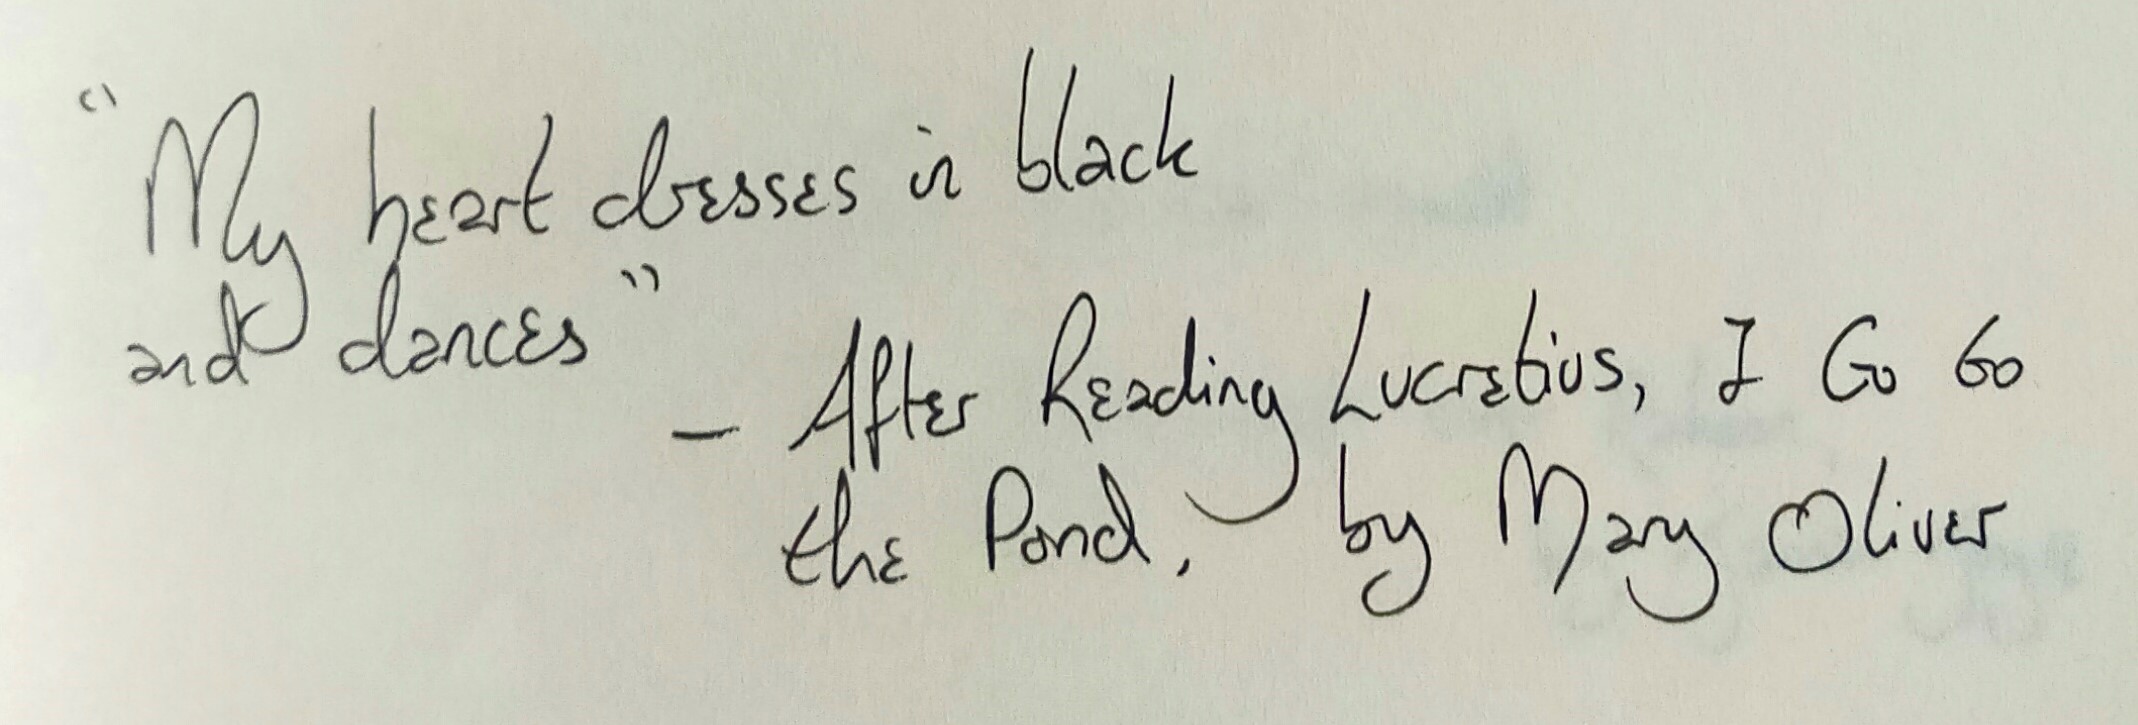 "My heart dresses in black
and dances"
– After Reading Lucretius, I Go to
the Pond, by Mary Oliver